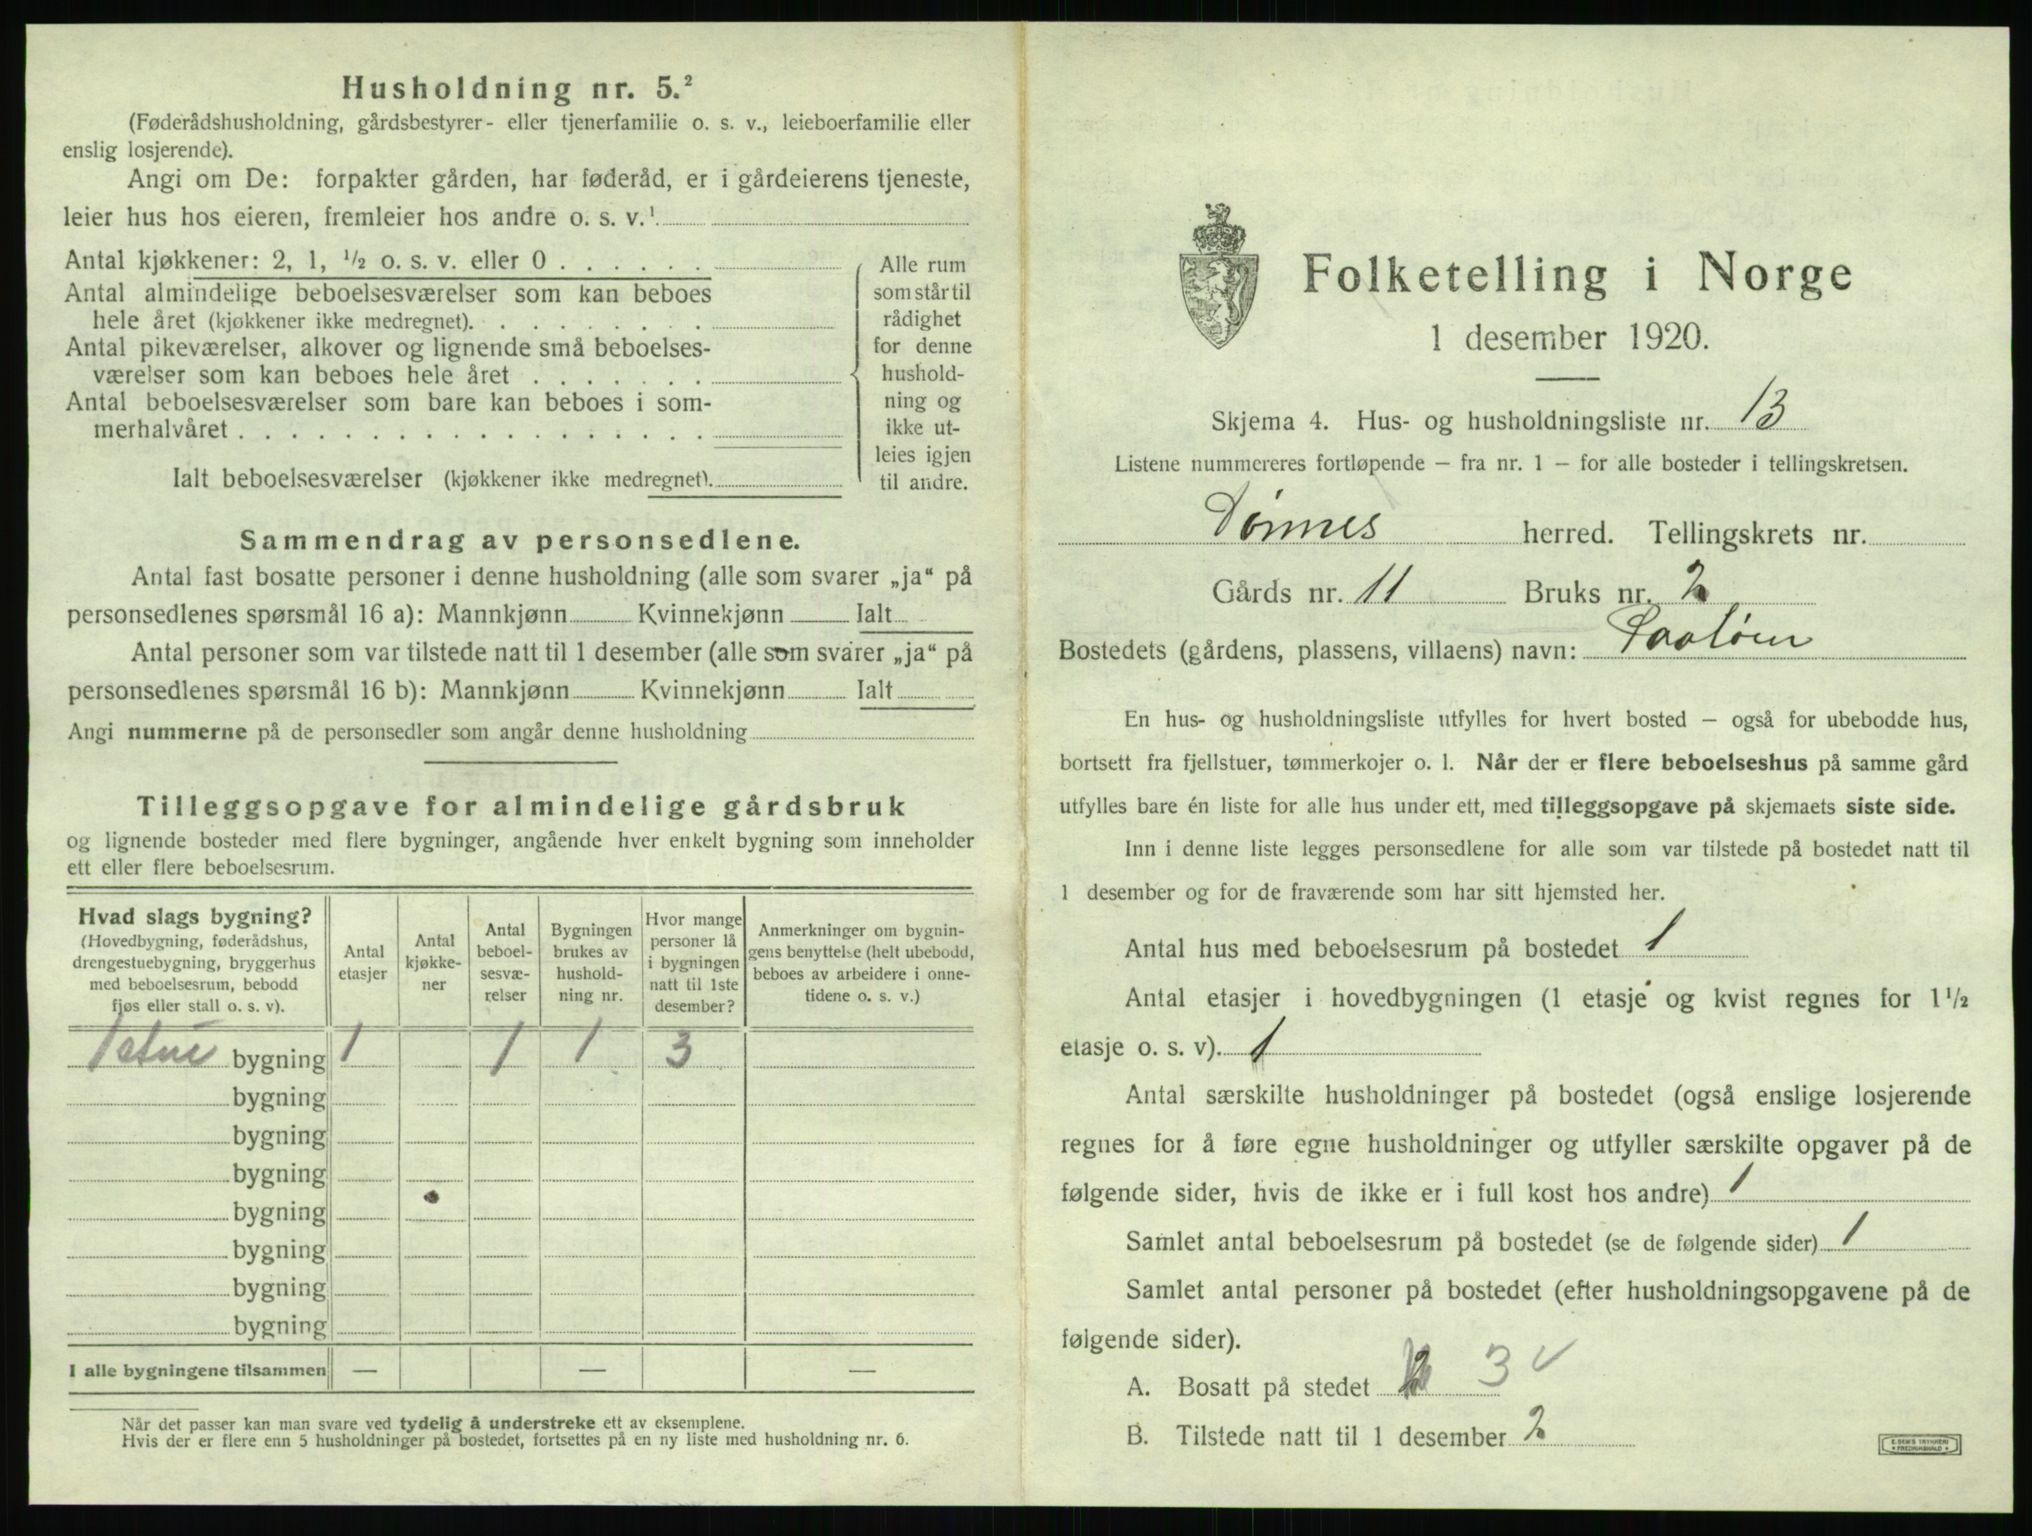 Husholdning nr. 5.²
(Føderådshusholdning, gårdsbestyrer- eller tjenerfamilie o. s. v., leieboerfamilie eller
enslig losjerende).
Angi om De: forpakter gården, har føderåd, er i gårdeierens tjeneste,
leier hus hos eieren, fremleier hos andre o. s. v.¹
Antal kjøkkener: 2, 1, ½ o. s. v. eller 0 . . . . . .
Antal almindelige beboelsesværelser som kan beboes
hele året (kjøkkener ikke medregnet). . . . . . . . .
Antal pikeværelser, alkover og lignende små beboelses-
værelser som kan beboes hele året . . . . . . .
Antal beboelsesværelser som bare kan beboes i som-
merhalvåret . . . . . . . . . . . . . . . . . .
Ialt beboelsesværelser (kjøkkener ikke medregnet).
Alle rum
som står til
rådighet
for denne
hushold-
ning og
ikke ut-
leies igjen
til andre.
Sammendrag av personsedlene.
Antal fast bosatte personer i denne husholdning (alle som svarer „ja“ på
personsedlenes spørsmål 16 a): Mannkjønn Kvinnekjønn Ialt
Antal personer som var tilstede natt til 1 desember (alle som svarer „ja“ på
personsedlenes spørsmål 16 b): Mannkjønn Kvinnekjønn Ialt
Angi nummerne på de personsedler som angår denne husholdning
Tilleggsopgave for almindelige gårdsbruk
og lignende bosteder med flere bygninger, angående hver enkelt bygning som inneholder
ett eller flere beboelsesrum.
Hvad slags bygning?
(Hovedbygning, føderådshus,
drengestuebygning, bryggerhus
med beboelsesrum, bebodd
fjøs eller stall o. s. v).
Antal
etasjer
Antal
kjøkke-
ner
Antal
beboel-
sesvæ-
relser
Bygningen
brukes av
hushold-
ning nr.
Hvor mange
personer lå
i bygningen
natt til 1ste
desember?
Anmerkninger om bygnin-
gens benyttelse (helt ubebodd,
beboes av arbeidere i onne-
tidene o. s. v.)
bygning 1 1 1 3
bygning
bygning
bygning
bygning
bygning
bygning
bygning
I alle bygningene tilsammen — — —
Når det passer kan man svare ved tydelig å understreke ett av eksemplene.
Hvis der er flere enn 5 husholdninger på bostedet, fortsettes på en ny liste med husholdning nr. 6.
Folketelling i Norge
1 desember 1920.
Skjema 4. Hus- og husholdningsliste nr. 13
Listene nummereres fortløpende – fra nr. 1 – for alle bosteder i tellingskretsen.
Dønnes herred. Tellingskrets nr.
Gårds nr. 11 Bruks nr. 2
Bostedets (gårdens, plassens, villaens) navn:
En hus- og husholdningsliste utfylles for hvert bosted – også for ubebodde hus,
bortsett fra fjellstuer, tømmerkojer o. l. Når der er flere beboelseshus på samme gård
utfylles bare én liste for alle hus under ett, med tilleggsopgave på skjemaets siste side.
Inn i denne liste legges personsedlene for alle som var tilstede på bostedet natt til
1 desember og for de fraværende som har sitt hjemsted her.
Antal hus med beboelsesrum på bostedet 1
Antal etasjer i hovedbygningen (1 etasje og kvist regnes for 1½
etasje o. s. v). 1
Antal særskilte husholdninger på bostedet (også enslige losjerende
regnes for å føre egne husholdninger og utfyller særskilte opgaver på de
følgende sider, hvis de ikke er i full kost hos andre) 1
Samlet antal beboelsesrum på bostedet (se de følgende sider) 1
Samlet antal personer på bostedet (efter husholdningsopgavene på de
følgende sider).
A. Bosatt på stedet 2 3 ✓
B. Tilstede natt til 1 desember 2